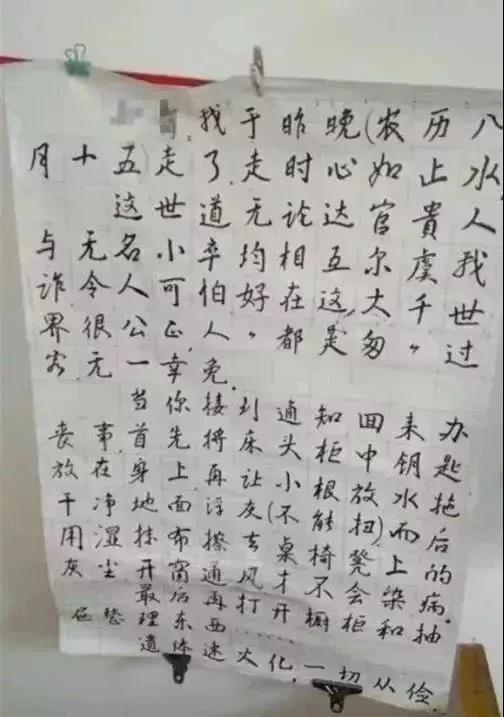 我于昨晚(农历八
月十五)走了.走时心如止水,
这世道无论达官贵人
与无名小卒均相互尔虞我
诈令人可怕好在这大千世
界很公正,人人都是匆匆过
客无一幸免.
当你接到通知回来办
丧事首先将床头柜中钥匙
放在身上再让小根放水拖
干净地面浮灰(不能扭)而后
用湿抹布擦去桌椅凳上的
灰尘开窗通风才不会染病.
最后再打开橱柜和抽
屉整理东西……
遗体速火化,一切从俭